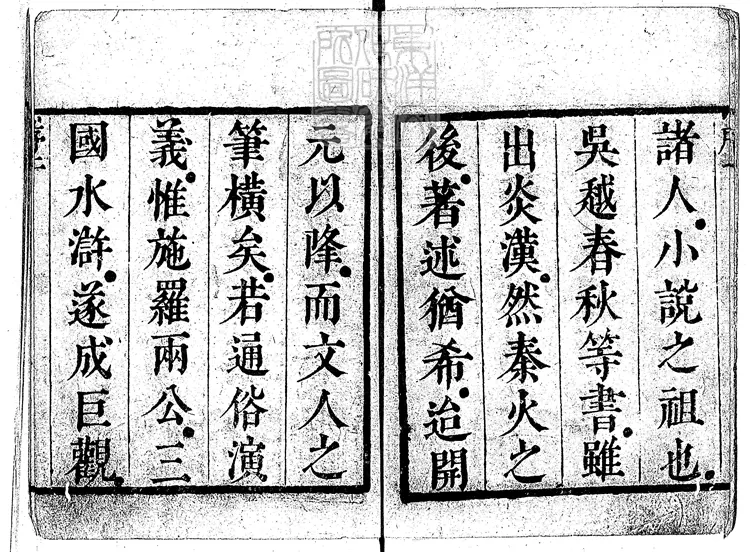 諸人。小説之祖也。
吳越春秋等書。雖
出炎漢。然秦火之
後。著述猶希。迨開
元以降。而文人之
筆橫矣。若通俗演
義。惟施羅兩公。三
國水滸。遂成巨觀。